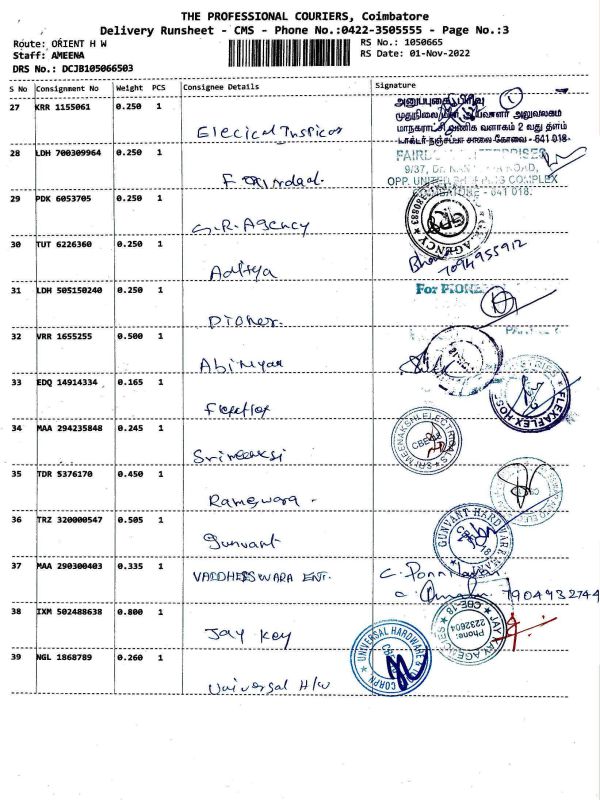 THE PROFESSIONAL COURIERS, Coimbatore
Delivery Runsheet - CMS - Phone No.:0422-3505555 - Page No.:3
Route: ORIENT H W
RS No.: 1050665
Staff: AMEENA
RS Date: 01-Nov-2022
DRS No.: DCJB105066503
S No Consignment No Weight PCS Consignee Details Signature
27 KRR 1155061 0.250 1
அனுப்புகை பிரிவு 1
முதுநிலை ஆய்வாளர் அலுவலகம்
மாநகராட்சி வணிக வளாகம் 2 வது தளம்
சாலை கோவை - 641 018.
Elecical Inspicor
28 LDH 700309964 0.250 1
FAIRD
9/37, Dr. ROAD,
OPP. UNITED COMPLEX
COIMBATORE - 641 018.
29 PDK 6053705 0.250 1
S.R. Agency
AGENCY
30 TUT 6226360 0.250 1
7094955912
Aditya
31 LDH 505150240 0.250 1
For PIONE
Pioner.
32 VRR 1655255 0.500 1
33 EDQ 14914334 0.165 1
FLEXAFLEX HOSE
34 MAA 294235848 0.245 1
SRI MEENAKSHI ELECTRICALS
CBE
Srimeenksi
35 TDR 5376170 0.450 1
Rameswara
36 TRZ 320000547 0.505 1
GUNVANT HARDWARE MART
CBE-18
Gunvant
37 MAA 290300403 0.335 1
VAIDHEESWARA ENT.
7904932744
38 IXM 502488638 0.800 1
JAY KAY AGENCIES
CBE-18
Phone:
2232604
Jay Key
39 NGL 1868789 0.260 1
UNIVERSAL HARDWARE &
CORPN
Universal H/W